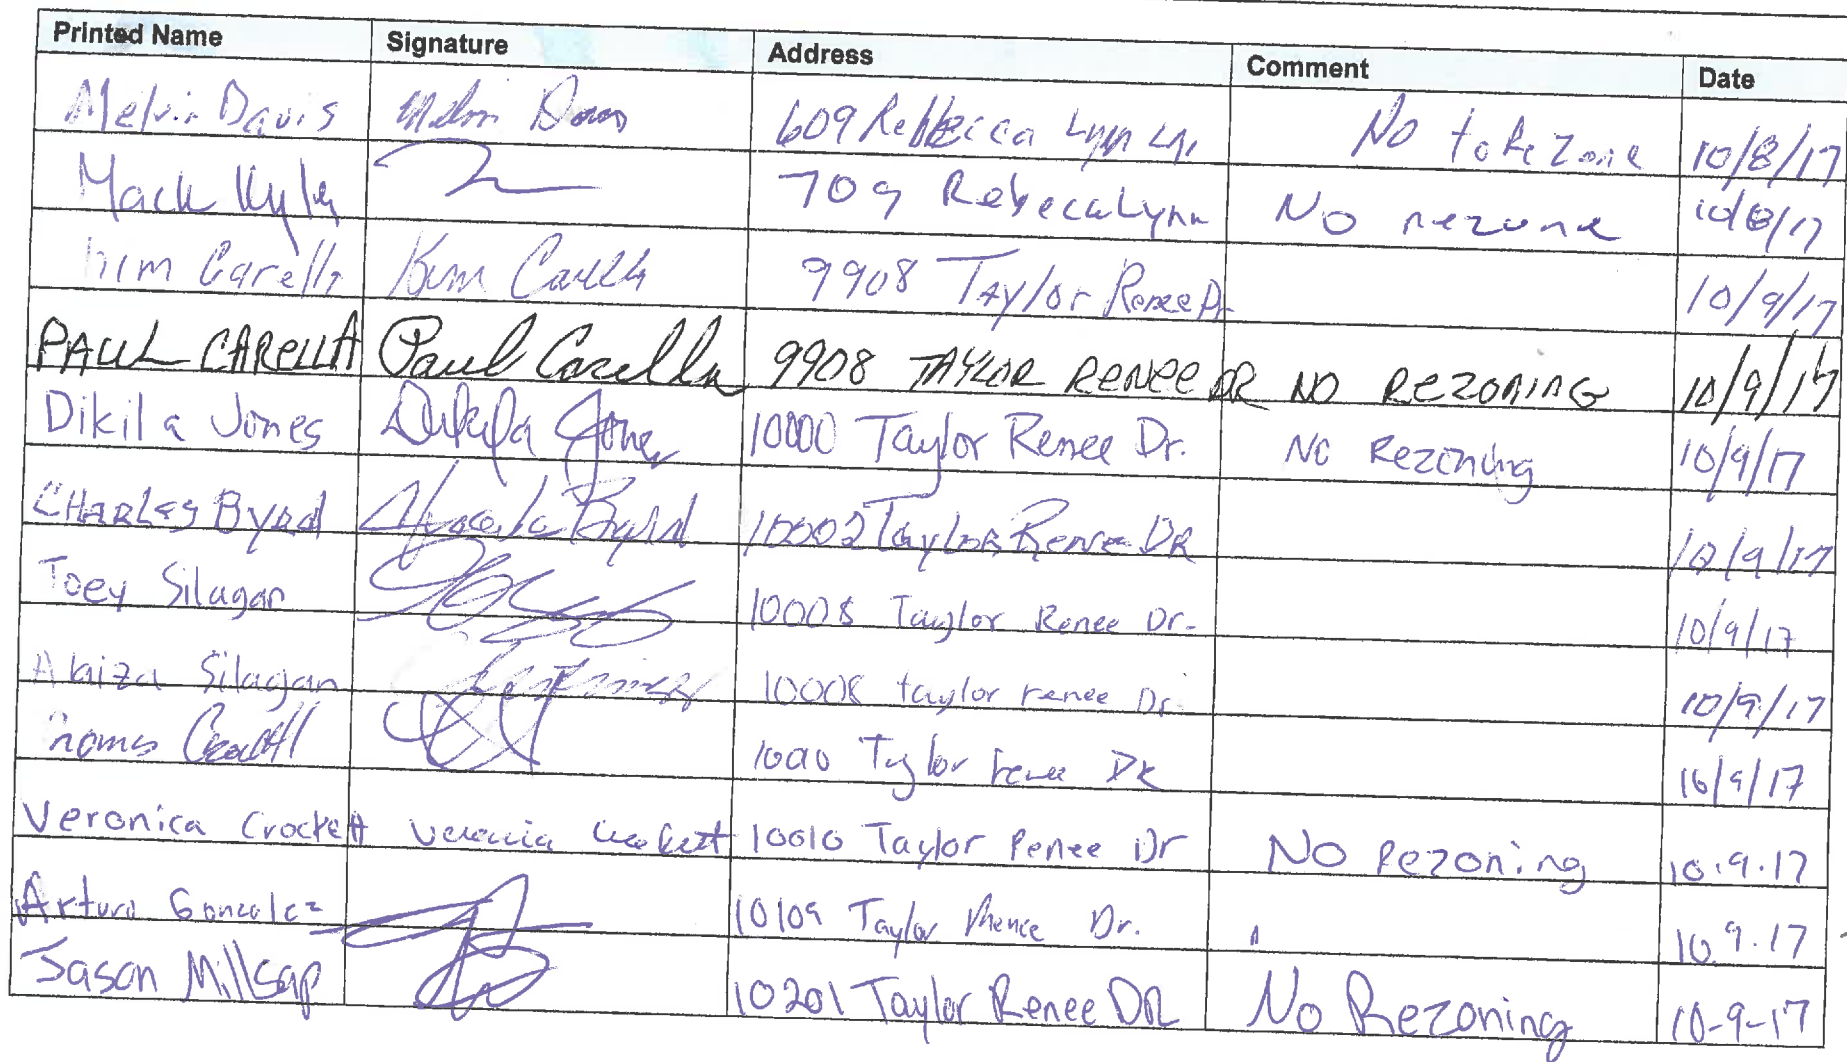 Printed Name Signature Address Comment Date
Melvin Davis Melvin Davis 609 Rebbecca Lynn Ln. No to Rezone 10/8/17
Mack 709 Rebecca Lynn No rezone 10/8/17
Kim Carella Kim Carella 9908 Taylor Renee Dr 10/9/17
PAUL CARELLA Paul Carella 9908 TAYLOR RENEE DR NO REZONING 10/9/17
Dikila Jones Dikila Jones 10000 Taylor Renee Dr. NO Rezoning 10/9/17
CHARLES Byrd Byrd 10002 Taylor Renee DR 10/9/17
Joey Silagan 10008 Taylor Renee Dr. 10/9/17
Silagan 10008 taylor renee Dr. 10/9/17
Taylor renee DR 10/9/17
Veronica Crockett Veronica Crockett 10010 Taylor Renee Dr No Rezoning 10.9.17
Arturo Gonzalez 10109 Taylor Renee Dr. 10.9.17
Jason Millsap 10201 Taylor Renee DR No Rezoning 10-9-17